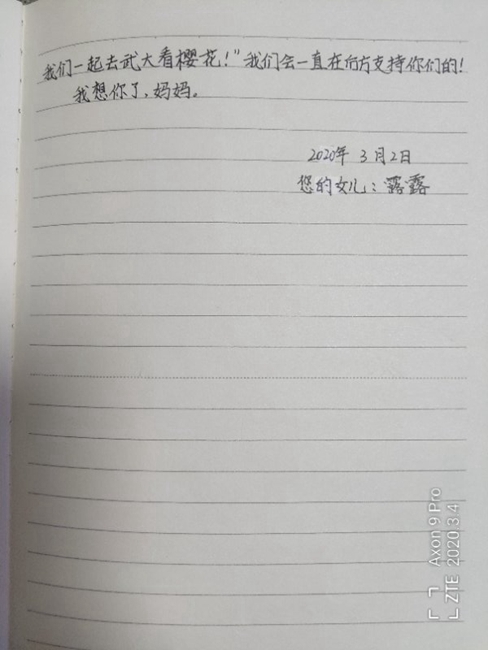 我们一起去武大看樱花！"我们会一直在后方支持你们的！
我想你了，妈妈。
2020年 3月2日
您的女儿：露露
Axon 9 Pro
ZTE 2020.3.4